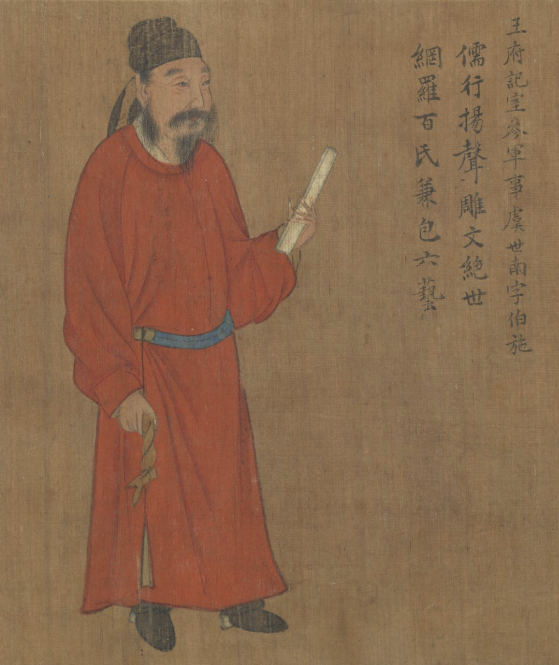 王府記室參軍事虞世南字伯施
儒行揚聲雕文絕世
網羅百氏兼包六藝